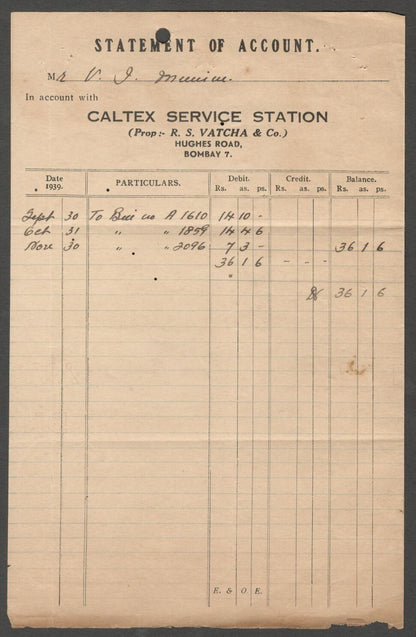 STATEMENT OF ACCOUNT.
Mr V. J.
In account with
CALTEX SERVICE STATION
(Prop:- R. S. VATCHA & Co.)
HUGHES ROAD,
BOMBAY 7.
Date 1939. PARTICULARS. Debit. Rs. as. ps. Credit. Rs. as. ps. Balance. Rs. as. ps.
Sept 30 To Bill no A 1610 14 10 -
Oct 31 " " 1859 14 4 6
Nov 30 " " 2096 7 3 - 36 1 6
36 1 6 - - -
"
Dr 36 1 6
E. & O. E.